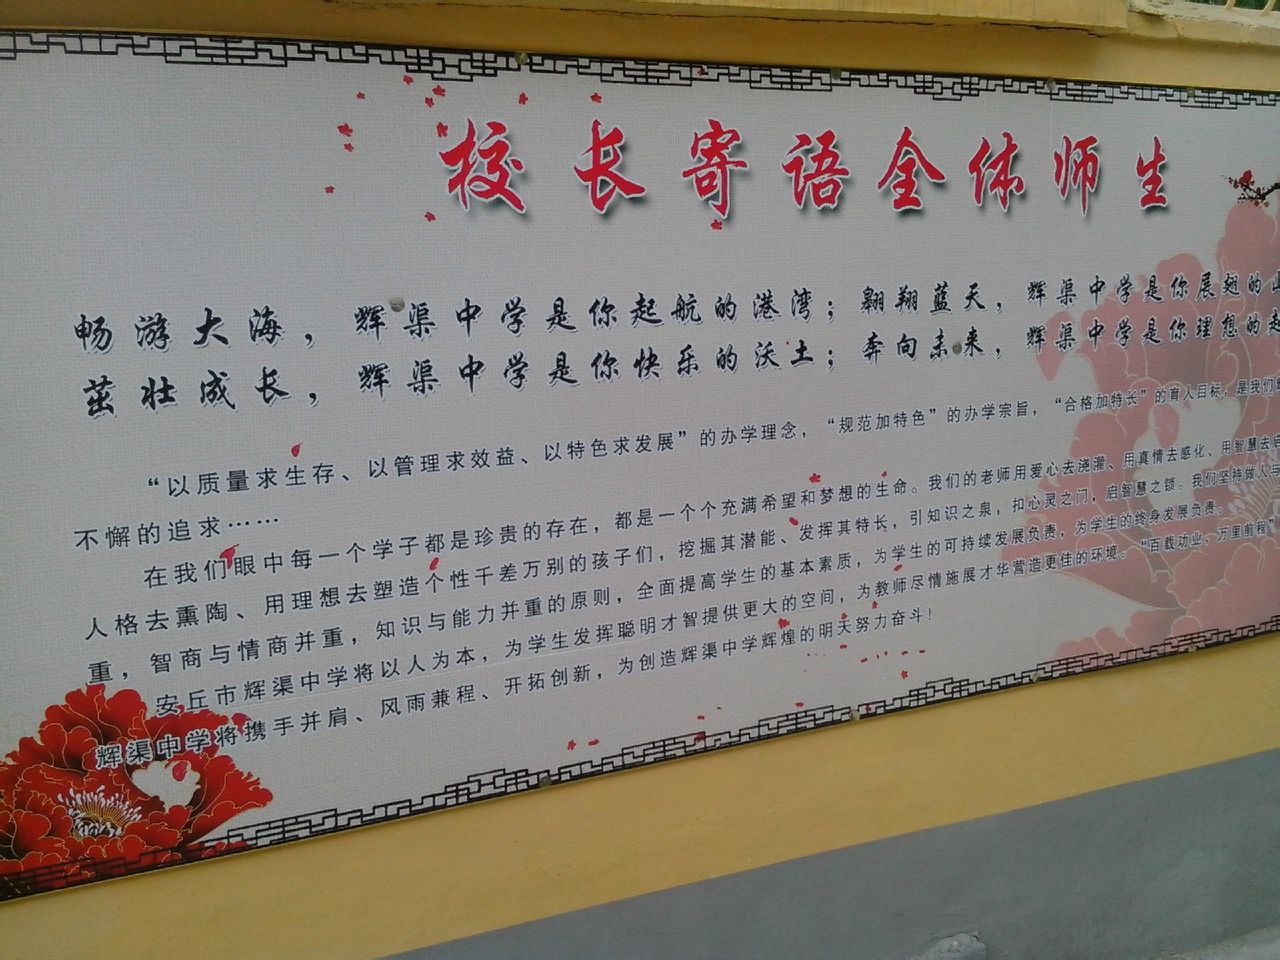 校长寄语全体师生
畅游大海，辉渠中学是你起航的港湾；翱翔蓝天，辉渠中学是你展翅的
茁壮成长，辉渠中学是你快乐的沃土；奔向未来，辉渠中学是你理想的
“以质量求生存、以管理求效益、以特色求发展”的办学理念，“规范加特色”的办学宗旨，“合格加特长”的育人目标，是我们
不懈的追求……
在我们眼中每一个学子都是珍贵的存在，都是一个个充满希望和梦想的生命。我们的老师用爱心去浇灌、用真情去感化、用智慧去启
人格去熏陶、用理想去塑造个性千差万别的孩子们，挖掘其潜能、发挥其特长，引知识之泉，扣心灵之门，启智慧之锁。我们坚持做人与
重，智商与情商并重，知识与能力并重的原则，全面提高学生的基本素质，为学生的可持续发展负责，为学生的终身发展负责。
安丘市辉渠中学将以人为本，为学生发挥聪明才智提供更大的空间，为教师尽情施展才华营造更佳的环境。“百载功业，万里前程”
辉渠中学将携手并肩、风雨兼程、开拓创新，为创造辉渠中学辉煌的明天努力奋斗！